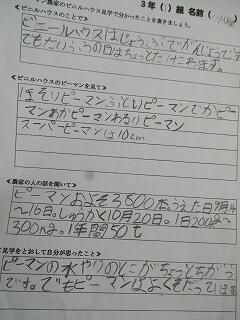 農家のビニルハウス見学で分かったことを書きましょう。
3年(1)組 名前(
ビニルハウスのことで>
ビニルハウスはじょうぶでがんじょうです
でもたいふうの日はちょっとたけこわます。
<ビニルハウスのピーマンを見て>
ほそりピーマンふといピーマンでかピー
マンあかピーマンわるいピーマン
スーパーピーマンは10cm
<農家の人の話を聞いて>
ピーマンおよそ3600本うえた日9月14
〜16日。しゅうかく10月20日。1日200kg〜
300kg。1年間50t
見学をとおして自分が思ったこと>
ピーマンの水やりのとこがちょっとちがう
です。でもピーマンはよくそだっています